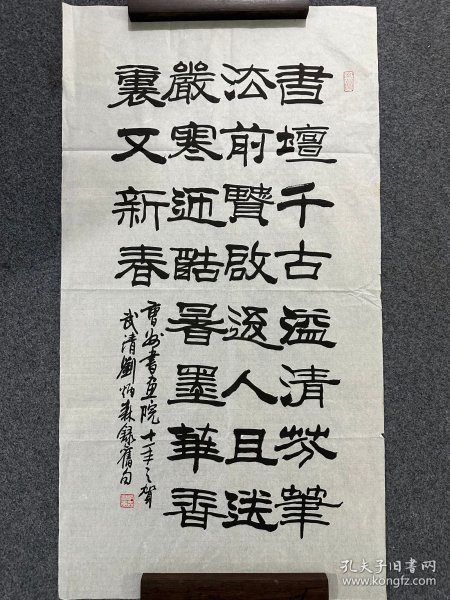 書壇千古溢清芳筆
法前賢啟後人且送
嚴寒迎酷暑墨華香
裏又新春
曹州書画院十年之賀
武清劉炳森錄舊句
孔夫子旧书网
www.kongfz.com